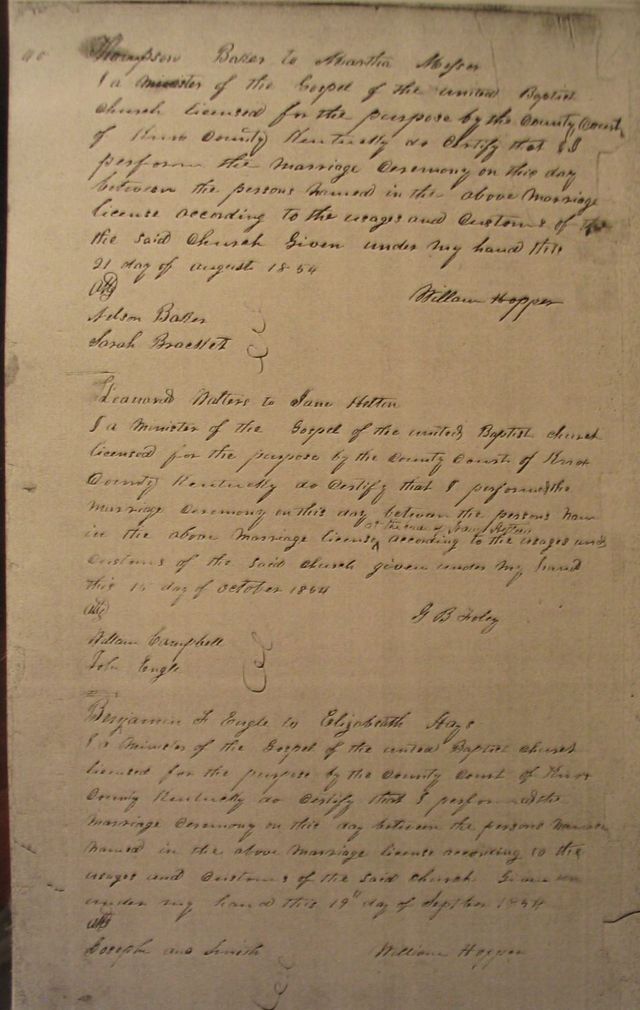 Thompson Baker to Martha Messer
I a Minister of the Gospel of the united Baptist
Church licensed for the purpose by the County Court
of Knox County Kentucky do Certify that I
perform the Marriage Ceremony on this day
between the persons Named in the above Marriage
license according to the usages and Customs of the
the said Church Given under My hand this
21 day of august 1854
William Hopper
Nelson Baker
Sarah
Leonard Walters to Jane Helton
I a Minister of the Gospel of the united Baptist church
licensed for the purpose by the County Court of Knox
County Kentucky do Certify that I perform the
Marriage Ceremony on this day between the persons Nam
at the house of
in the above Marriage license according to the usages and
Customs of the said church given under My hand
this 15 day of october 1854
G B Foley
William Campbell
John Engle
Benjamin F Engle to Elizabeath Hays
I a Minister of the Gospel of the united Baptist church
licensed for the purpose by the County Court of Knox
County Kentucky do Certify that I perform the
Marriage Ceremony on this day between the persons
Named in the above Marriage license according to the
usages and Customs of the said church Given
under my hand this 19th day of 1854
Joseph and Smith
William Hopper